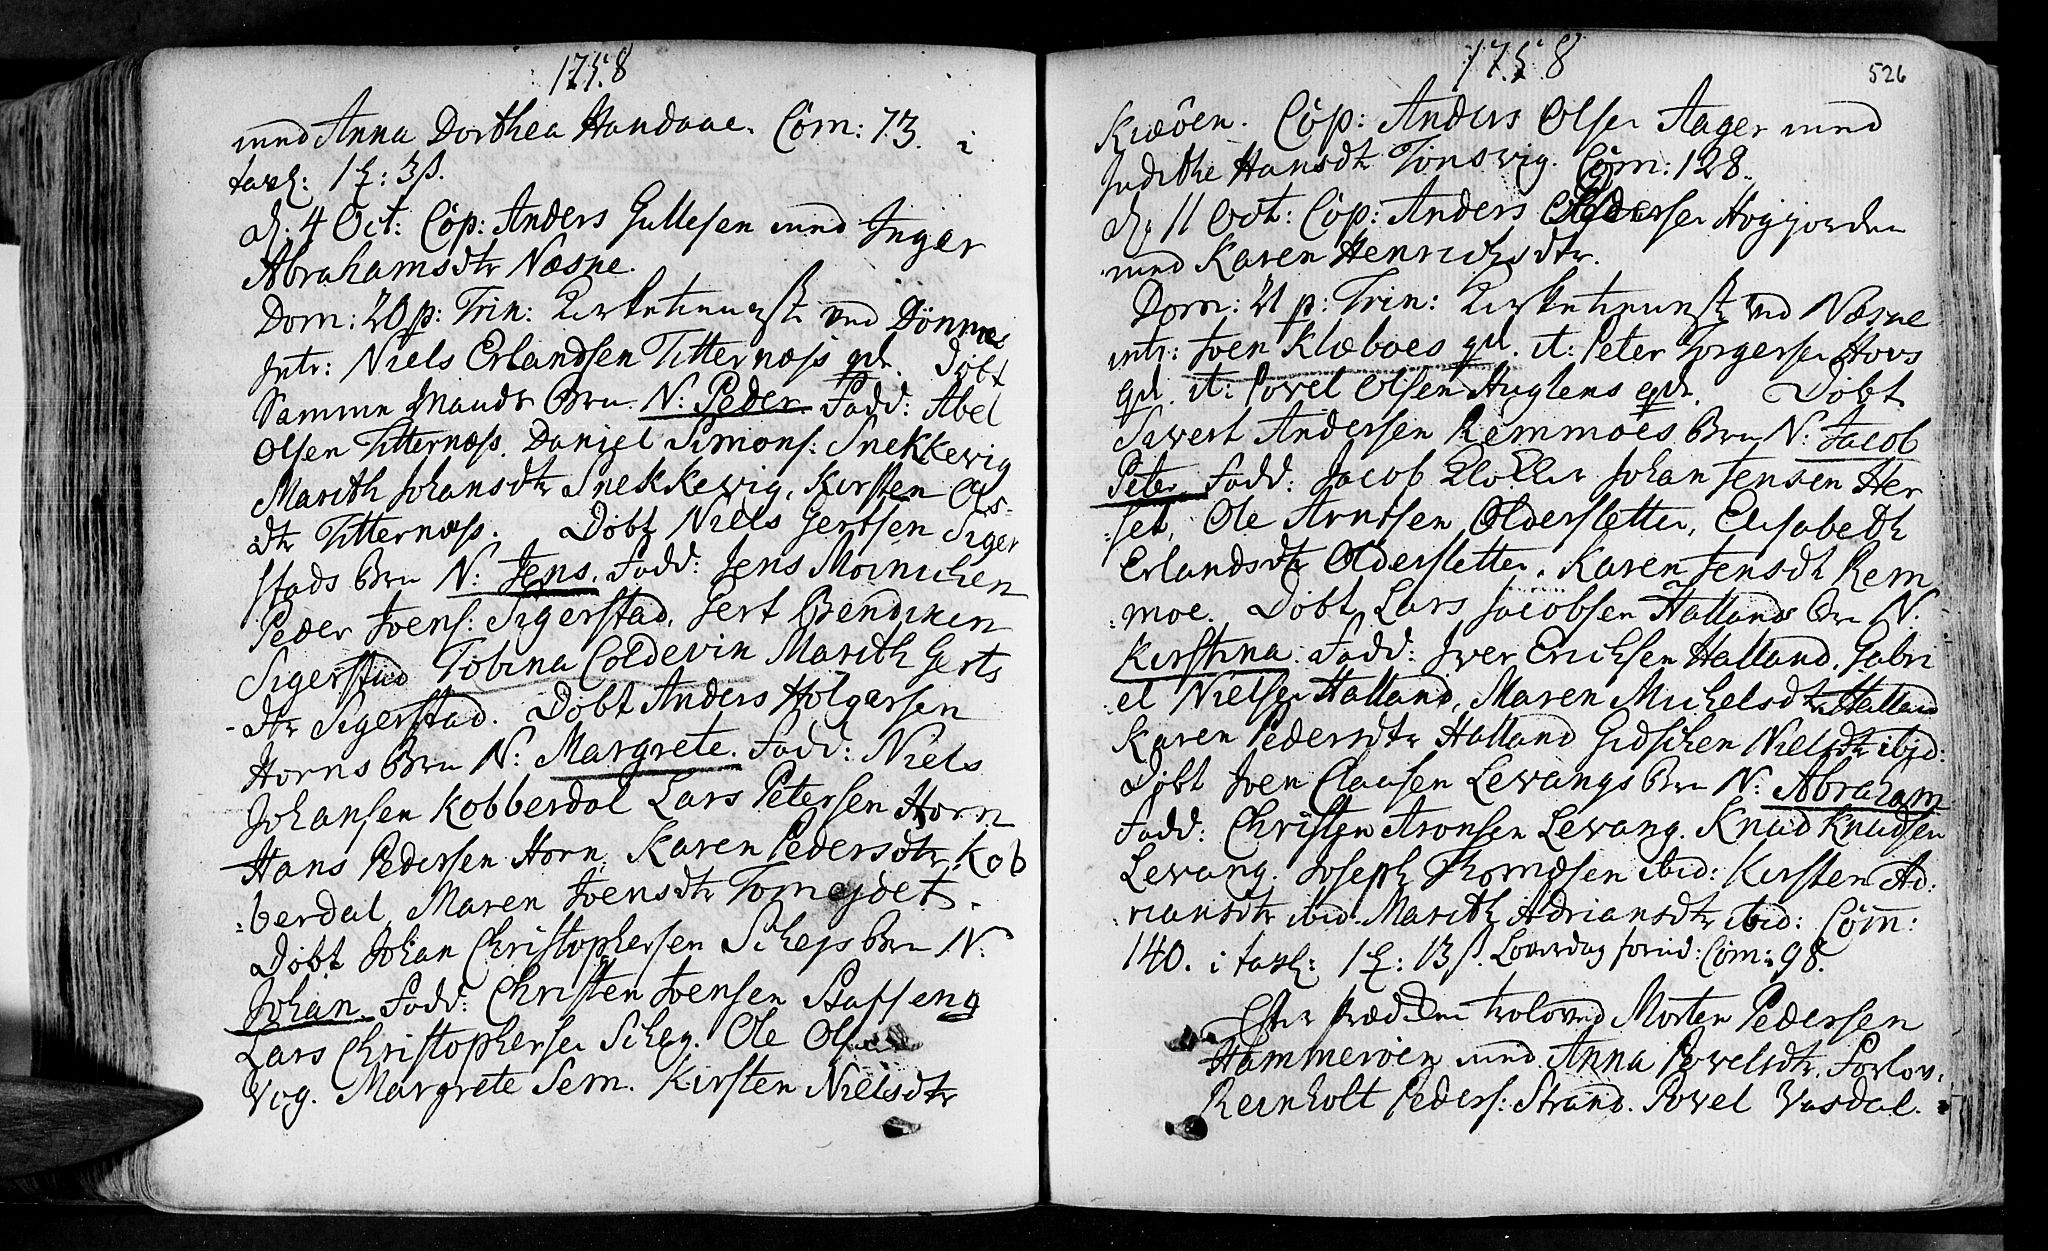 1758
med Anna Dorthea Handaae. Com: 73. i
tavl: 1 : 3 ß.
d. 4 Oct: Cop: Anders Gullesen med Inger
Abrahamsdtr Næsne.
Dom: 20 p: Trin: Kirketieneste ved Dönnæs
Intr: Niels Erlandsen Titternæss qd. Döbt
Samme Mands Brn N: Peder Fadd: Abel
Olsen Titternæss. Daniel Simons: Snekkevig
Marith Johansdtr Snekkevig, Kirsten Ols-
dtr Titternæss. Döbt Niels Gertsen Siger
stads Brn N: Jens. Fadd: Jens Moinichen
Peder Joens: Sigerstad, Gert Bendixen
Sigerstad Tobina Coldevin Marith Gerts
dtr Sigerstad. Döbt Anders Holgersen
Horns Brn N: Margrete. Fadd: Niels
Johansen Kobberdal Lars Petersen Horn
Hans Pedersen Horn, Karen Pedersdtr Kob
berdal, Maren Joensdtr
Döbt Johan Christophersen Schejs Brn N:
Johan. Fadd: Christen Joensen Staffeng
Lars Christophersen Schey. Ole Olsen
Vog. Margrete Sem. Kirsten Nielsdtr
1758 526
Kiæöen. Cop: Anders Olsen Aager med
Judithe Hansdtr Tönsvig. Com: 128.
d. 11 Oct: Cop: Anders Högjorden
med Karen Henrichsdtr.
Dom: 21 p: Trin: Kirketieneste ved Næsne
intr: Joen Klæboes qd. it: Peter Torgersen Hovs
qd. it: Povel Olsen Huglens qd. Döbt
Sivert Andersen Remmoes Brn N: Jacob
Peter Fadd: Jacob Johan Jensen Her
set, Ole Arntsen Oldersletten, Elisabeth
Erlandsdtr Oldersletten. Karen Jensdtr Rem
moe. Döbt Lars Jacobsen Hallands Brn N:
Kirstina. Fadd: Iver Erichsen Halland, Gabri
el Nielsen Halland, Maren Michelsdtr Halland
Karen Pedersdtr Halland Gidschen Nielsdtr ibid:
Döbt Joen Clausen Levangs Brn N: Abraham
Fadd: Christen Aronsen Levang. Knud Knudsen
Levang. Joseph Thomæsen ibid: Kirsten Ad:
riansdtr ibid: Marith Adriansdtr ibid: Com:
140. i tavl: 1 : 13 ß. Löverdag forud: Com: 98.
Efter Prædiken troloved Morten Pedersen
Hammeröen med Anna Povelsdtr. Forlov:
Reinholt Peders: Strand. Povel Vasdal.